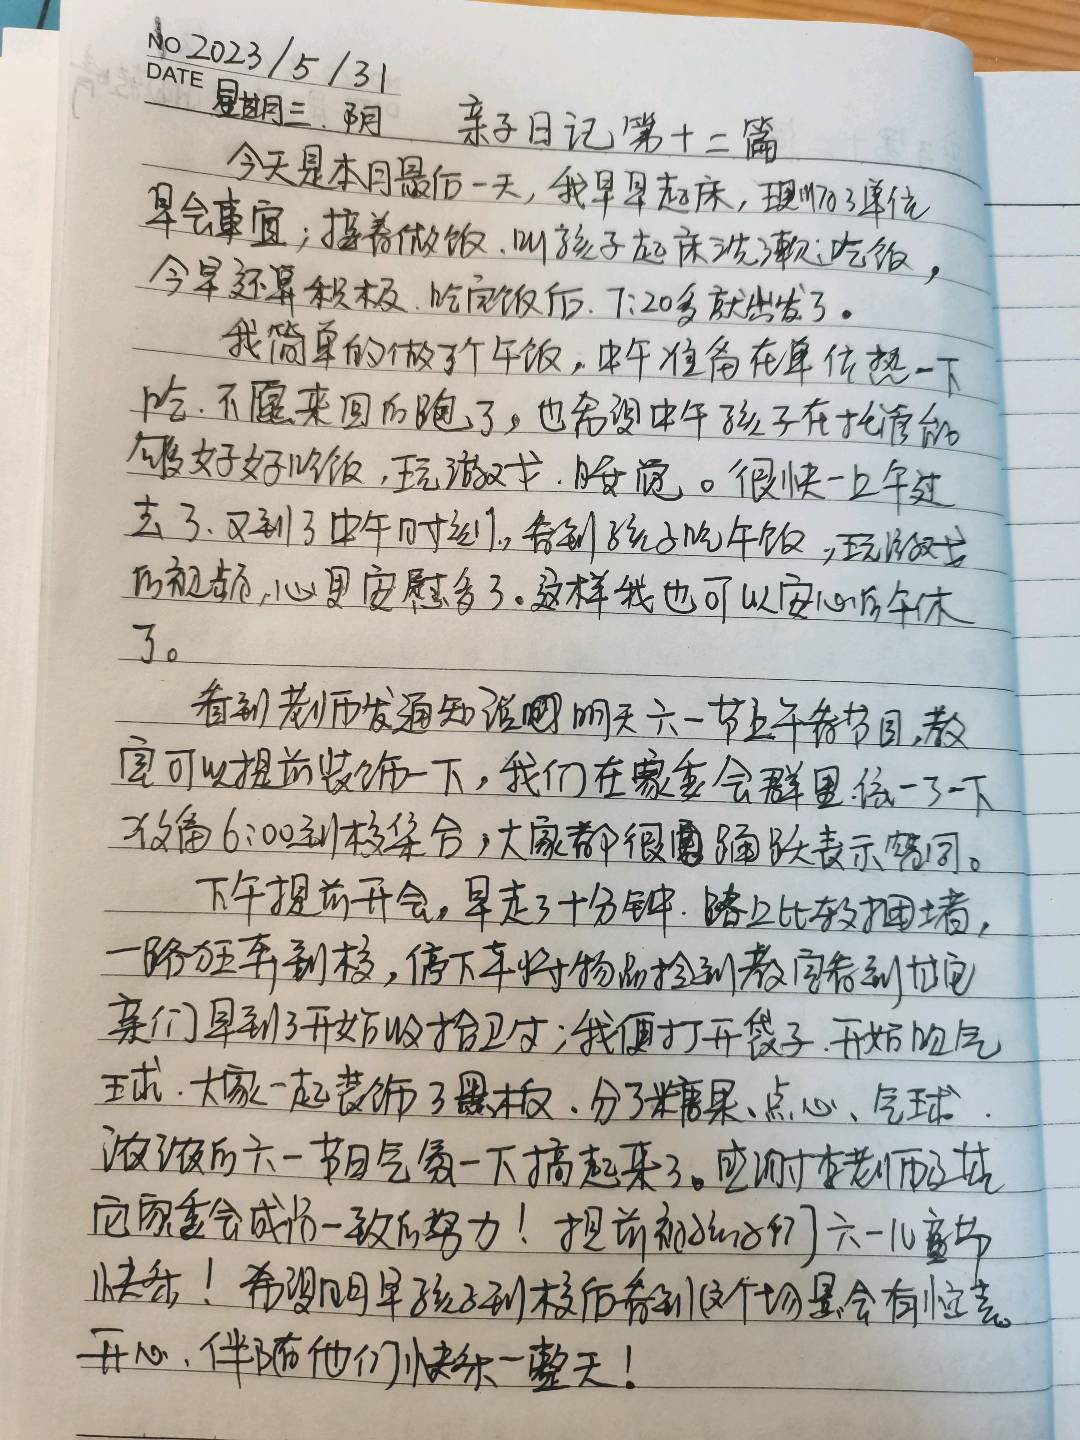 NO 2023/5/31
DATE
星期三．阴 亲子日记第十二篇
今天是本月最后一天，我早早起床，理了单位
早会事宜；接着做饭．叫孩子起床洗漱；吃饭，
今早还算积极．吃完饭后．7:20多就出发了。
我简单的做了个午饭，中午准备在单位热一下
吃．不愿来回的跑了。也希望中午孩子在托管能
够好好吃饭，玩游戏．睡觉。很快一上午过
去了．又到了中午时刻，看到孩子吃午饭，玩游戏
的视频，心里安慰多了。这样我也可以安心的午休
了。
看到老师发通知说 明天六一节上午有节目，教
室可以提前装饰一下，我们在家委会群里 一下
6:00到校集合，大家都很 踊跃表示赞同。
下午提前开会，早走了十分钟．路上比较拥堵，
一路狂奔到校，停下车将物品拎到教室看到其它
亲们早到了开始收拾卫生；我便打开袋子．开始吹气
球．大家一起装饰了黑板、分了糖果、点心、气球．
浓浓的六一节日气氛一下搞起来了。感谢李老师及其
它家委会成员一致的努力！提前祝孩子们六一儿童节
快乐！希望明早孩子到校后看到这个场景会有惊喜。
开心、伴随他们快乐一整天！